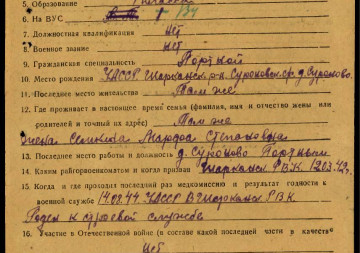 5. Образование
6. На ВУС 134
7. Должностная квалификация Нет
8. Военное звание Нет
9. Гражданская специальность Портной
10. Место рождения УАССР Шарканский р-н Сурновский с/с д. Сурново.
11. Последнее место жительства Там же
12. Где проживает в настоящее время семья (фамилия, имя и отчество жены или
родителей и точный их адрес) Там же
жена Марфа Степановна
13. Последнее место работы и должность д. Сурново Портным
14. Каким райгорвоенкоматом и когда призван Шарканск. Р.В.К.
15. Когда и где проходил последний раз медкомиссию и результат годности к
военной службе 14.08.44. УАССР В Шарканск РВК
Годен к строевой службе
16. Участие в Отечественной войне (в составе какой последней части в качестве
Нет